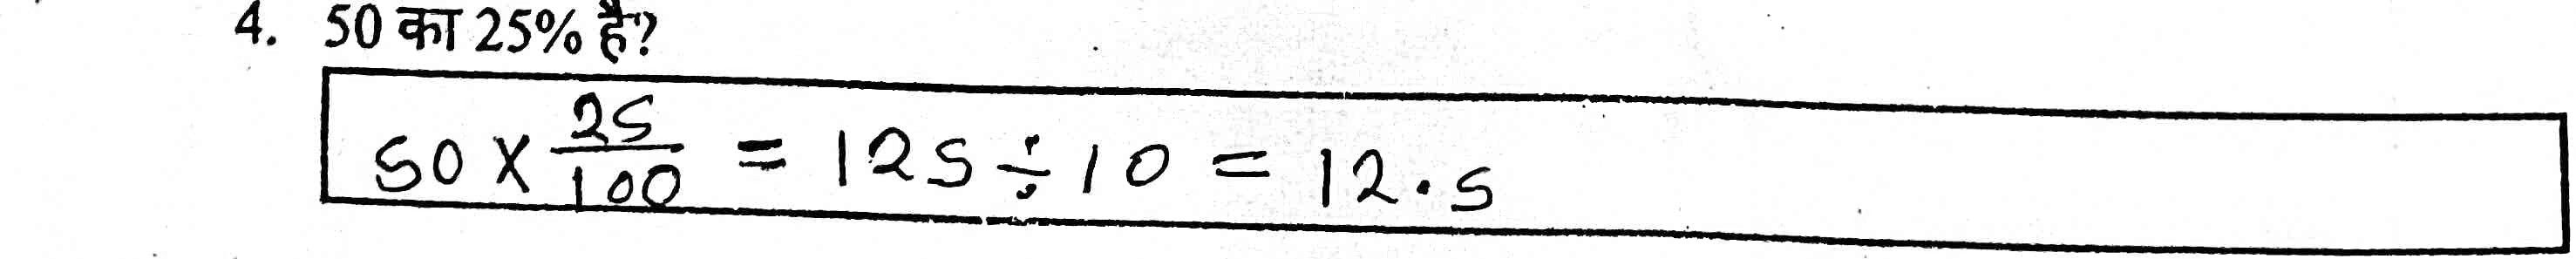 4. 50 का 25% है?
50 × 25/100 = 125 ÷ 10 = 12.5